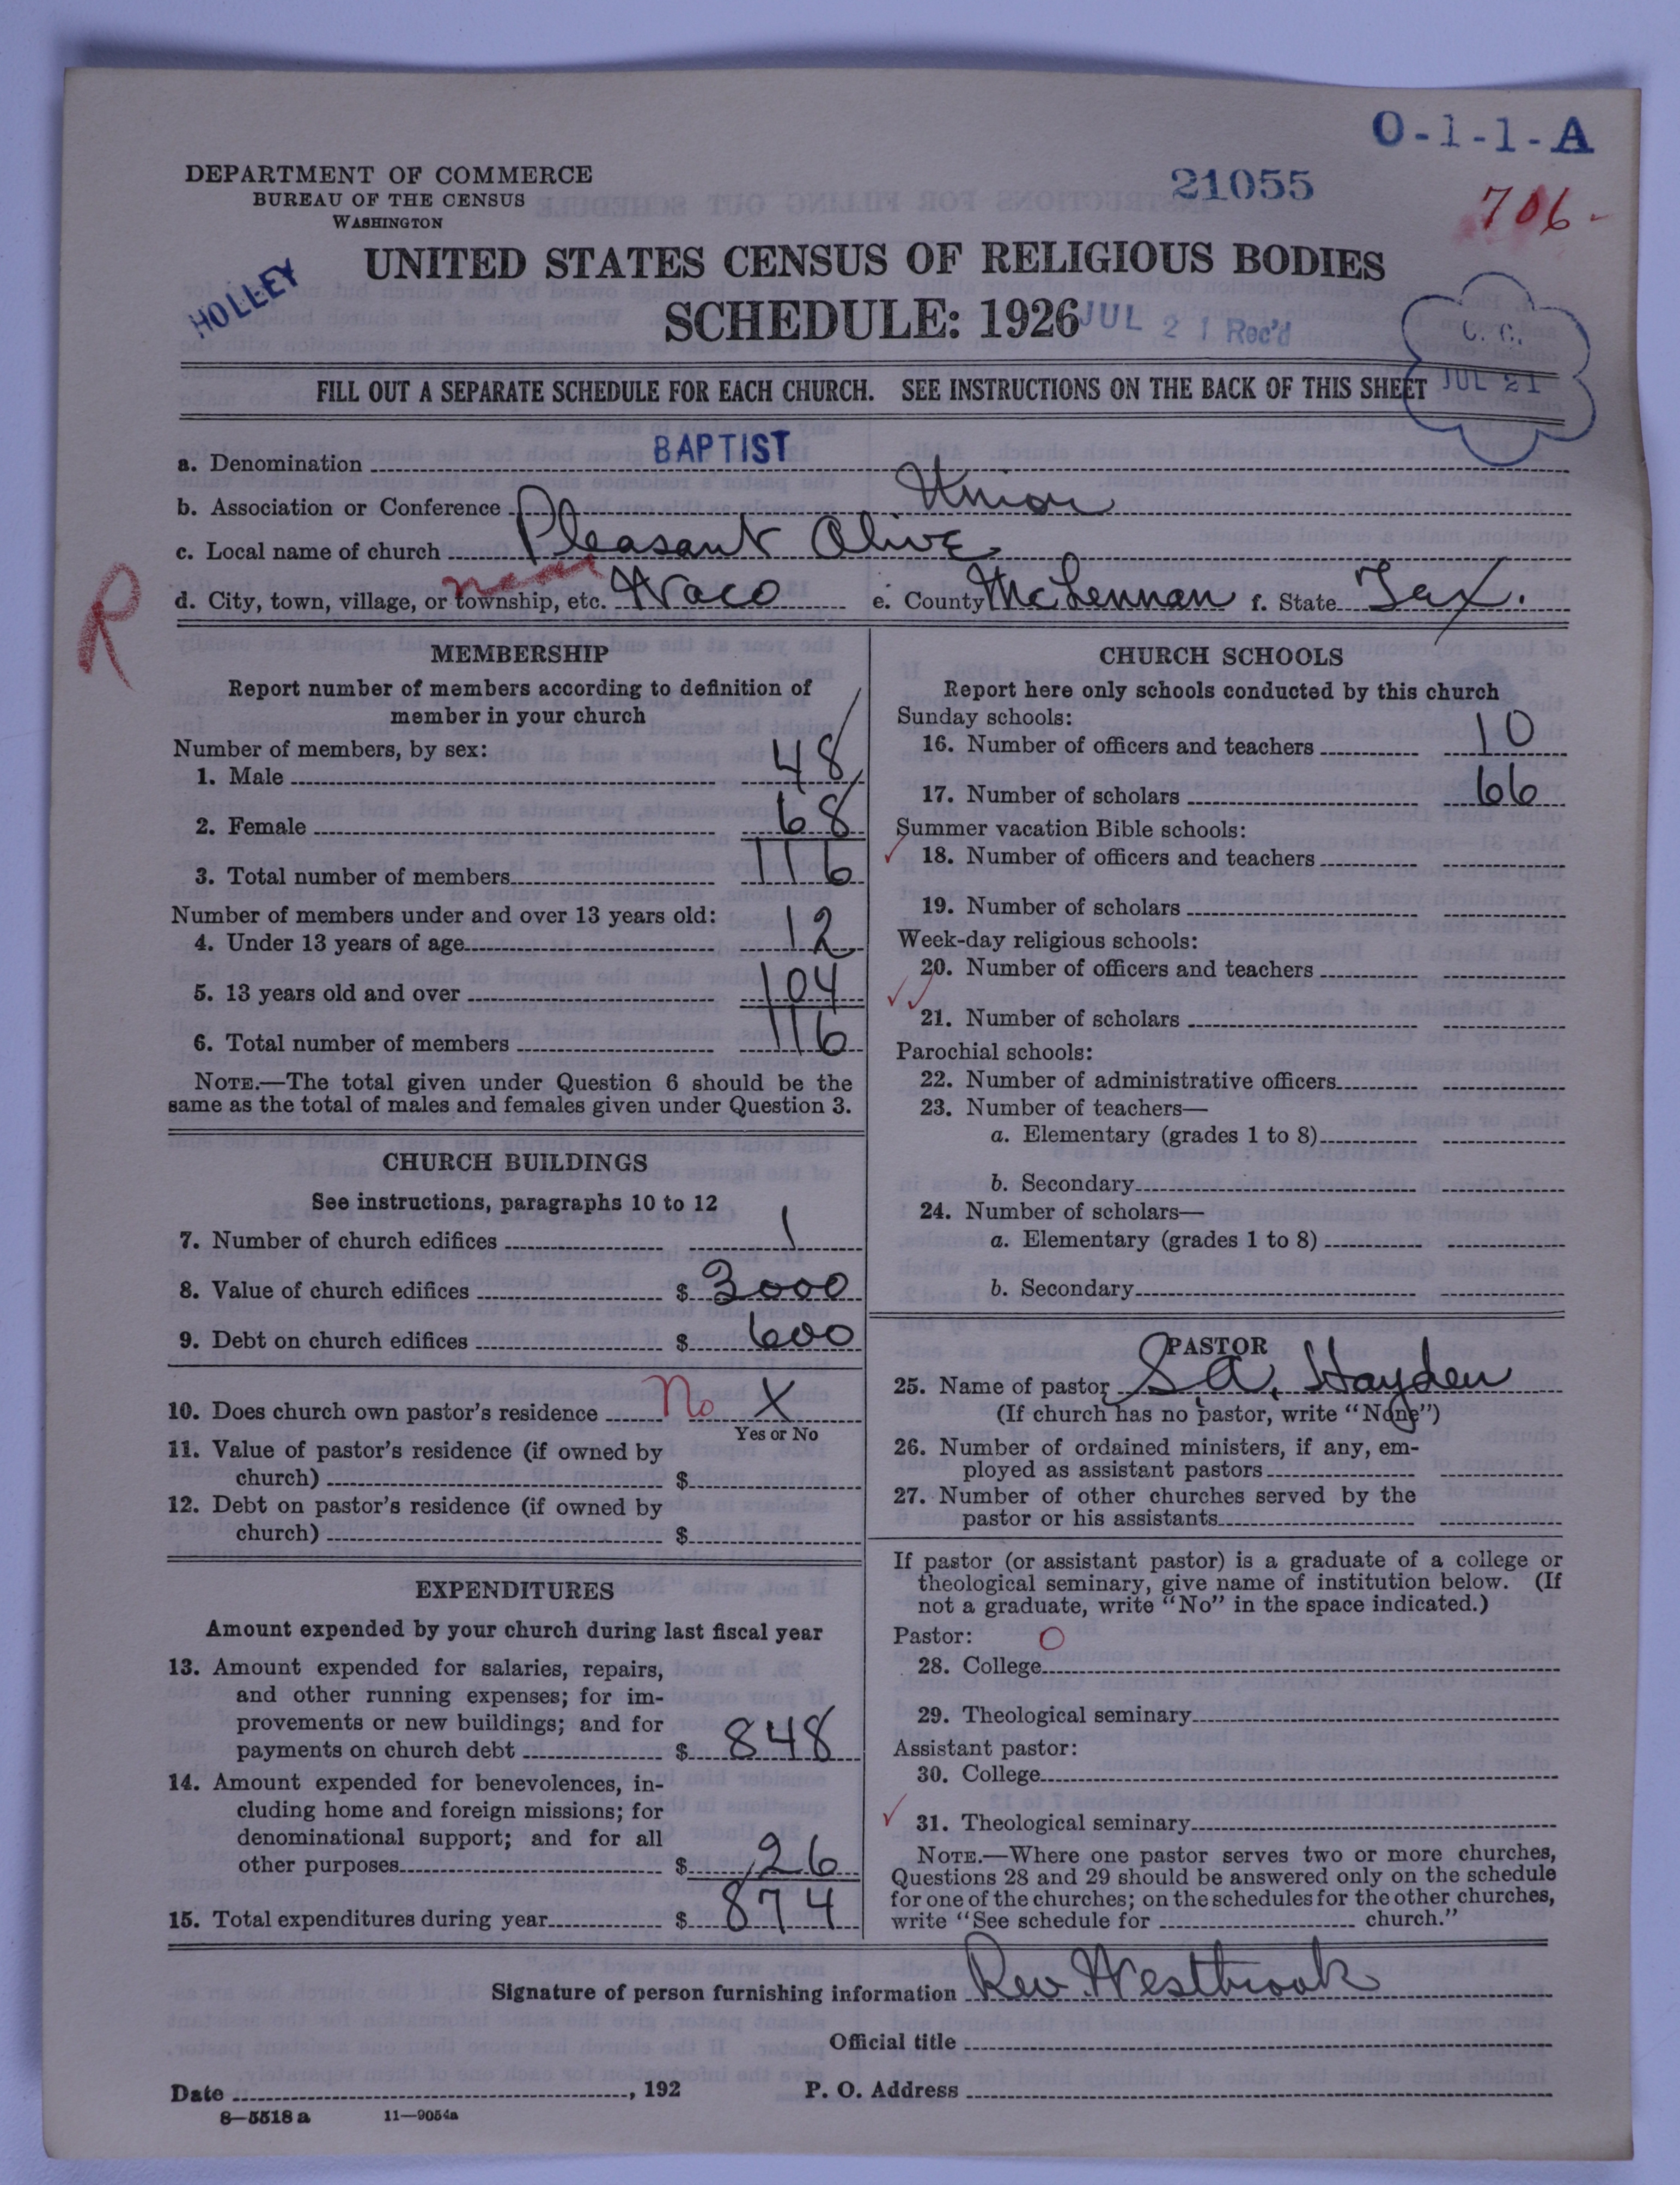 O-1-1-A
DEPARTMENT OF COMMERCE
BUREAU OF THE CENSUS
WASHINGTON
21055
706-
HOLLEY
UNITED STATES CENSUS OF RELIGIOUS BODIES
SCHEDULE: 1926
JUL 21 Rec'd
C. C.
JUL 21
FILL OUT A SEPARATE SCHEDULE FOR EACH CHURCH. SEE INSTRUCTIONS ON THE BACK OF THIS SHEET
a. Denomination BAPTIST
b. Association or Conference Union
c. Local name of church Pleasant Olive
near
d. City, town, village, or township, etc. Waco e. County McLennan f. State Tex.
R
MEMBERSHIP
Report number of members according to definition of
member in your church
Number of members, by sex:
1. Male 48
2. Female 68
3. Total number of members 116
Number of members under and over 13 years old:
4. Under 13 years of age 12
5. 13 years old and over 104
6. Total number of members 116
NOTE.—The total given under Question 6 should be the
same as the total of males and females given under Question 3.
CHURCH BUILDINGS
See instructions, paragraphs 10 to 12
7. Number of church edifices 1
8. Value of church edifices $ 3000
9. Debt on church edifices $ 600
10. Does church own pastor's residence No X
Yes or No
11. Value of pastor's residence (if owned by
church) $
12. Debt on pastor's residence (if owned by
church) $
EXPENDITURES
Amount expended by your church during last fiscal year
13. Amount expended for salaries, repairs,
and other running expenses; for im-
provements or new buildings; and for
payments on church debt $ 848
14. Amount expended for benevolences, in-
cluding home and foreign missions; for
denominational support; and for all
other purposes $ 26
15. Total expenditures during year $ 874
CHURCH SCHOOLS
Report here only schools conducted by this church
Sunday schools:
16. Number of officers and teachers 10
17. Number of scholars 66
Summer vacation Bible schools:
18. Number of officers and teachers
19. Number of scholars
Week-day religious schools:
20. Number of officers and teachers
21. Number of scholars
Parochial schools:
22. Number of administrative officers
23. Number of teachers—
a. Elementary (grades 1 to 8)
b. Secondary
24. Number of scholars—
a. Elementary (grades 1 to 8)
b. Secondary
PASTOR
25. Name of pastor S. A. Hayden
(If church has no pastor, write "None")
26. Number of ordained ministers, if any, em-
ployed as assistant pastors
27. Number of other churches served by the
pastor or his assistants
If pastor (or assistant pastor) is a graduate of a college or
theological seminary, give name of institution below. (If
not a graduate, write "No" in the space indicated.)
Pastor: O
28. College
29. Theological seminary
Assistant pastor:
30. College
31. Theological seminary
NOTE.—Where one pastor serves two or more churches,
Questions 28 and 29 should be answered only on the schedule
for one of the churches; on the schedules for the other churches,
write "See schedule for church."
Signature of person furnishing information Rev. Westbrook
Official title
Date , 192 P. O. Address
8—5518 a 11—9054a